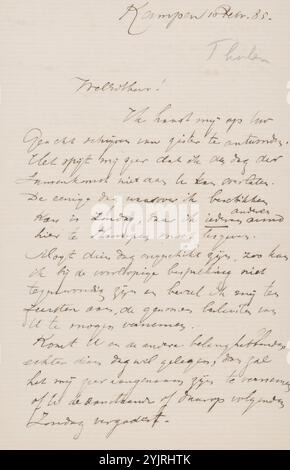 Kampen 10 Febr. 85.
Tholen
WelEdheer!
Ik haast mij op Uw
geacht schrijven van gister te antwoorden.
Het spijt mij zeer dat ik de dag der
samenkomst niet aan U kan overlaten.
De eenige dag waarover ik beschikken
kan is Zondag, daar ik ieder anderen avond
hier te Kampen moet lesgeven.
Mogt dien dag ongeschikt zijn, zoo kan
ik bij de voorloopige bespreking niet
tegenwoordig zijn en beveel ik mij ten
zeersten aan, de genomen besluiten van
U te mogen vernemen.
Komt U en de andere belanghebbenden
echter dien dag wel gelegen, dan zal
het mij zeer aangenaam zijn te vernemen
of U de aanstaande of daarop volgenden
Zondag vergadert.
alamy
Image ID: 2YJRHTK
www.alamy.com